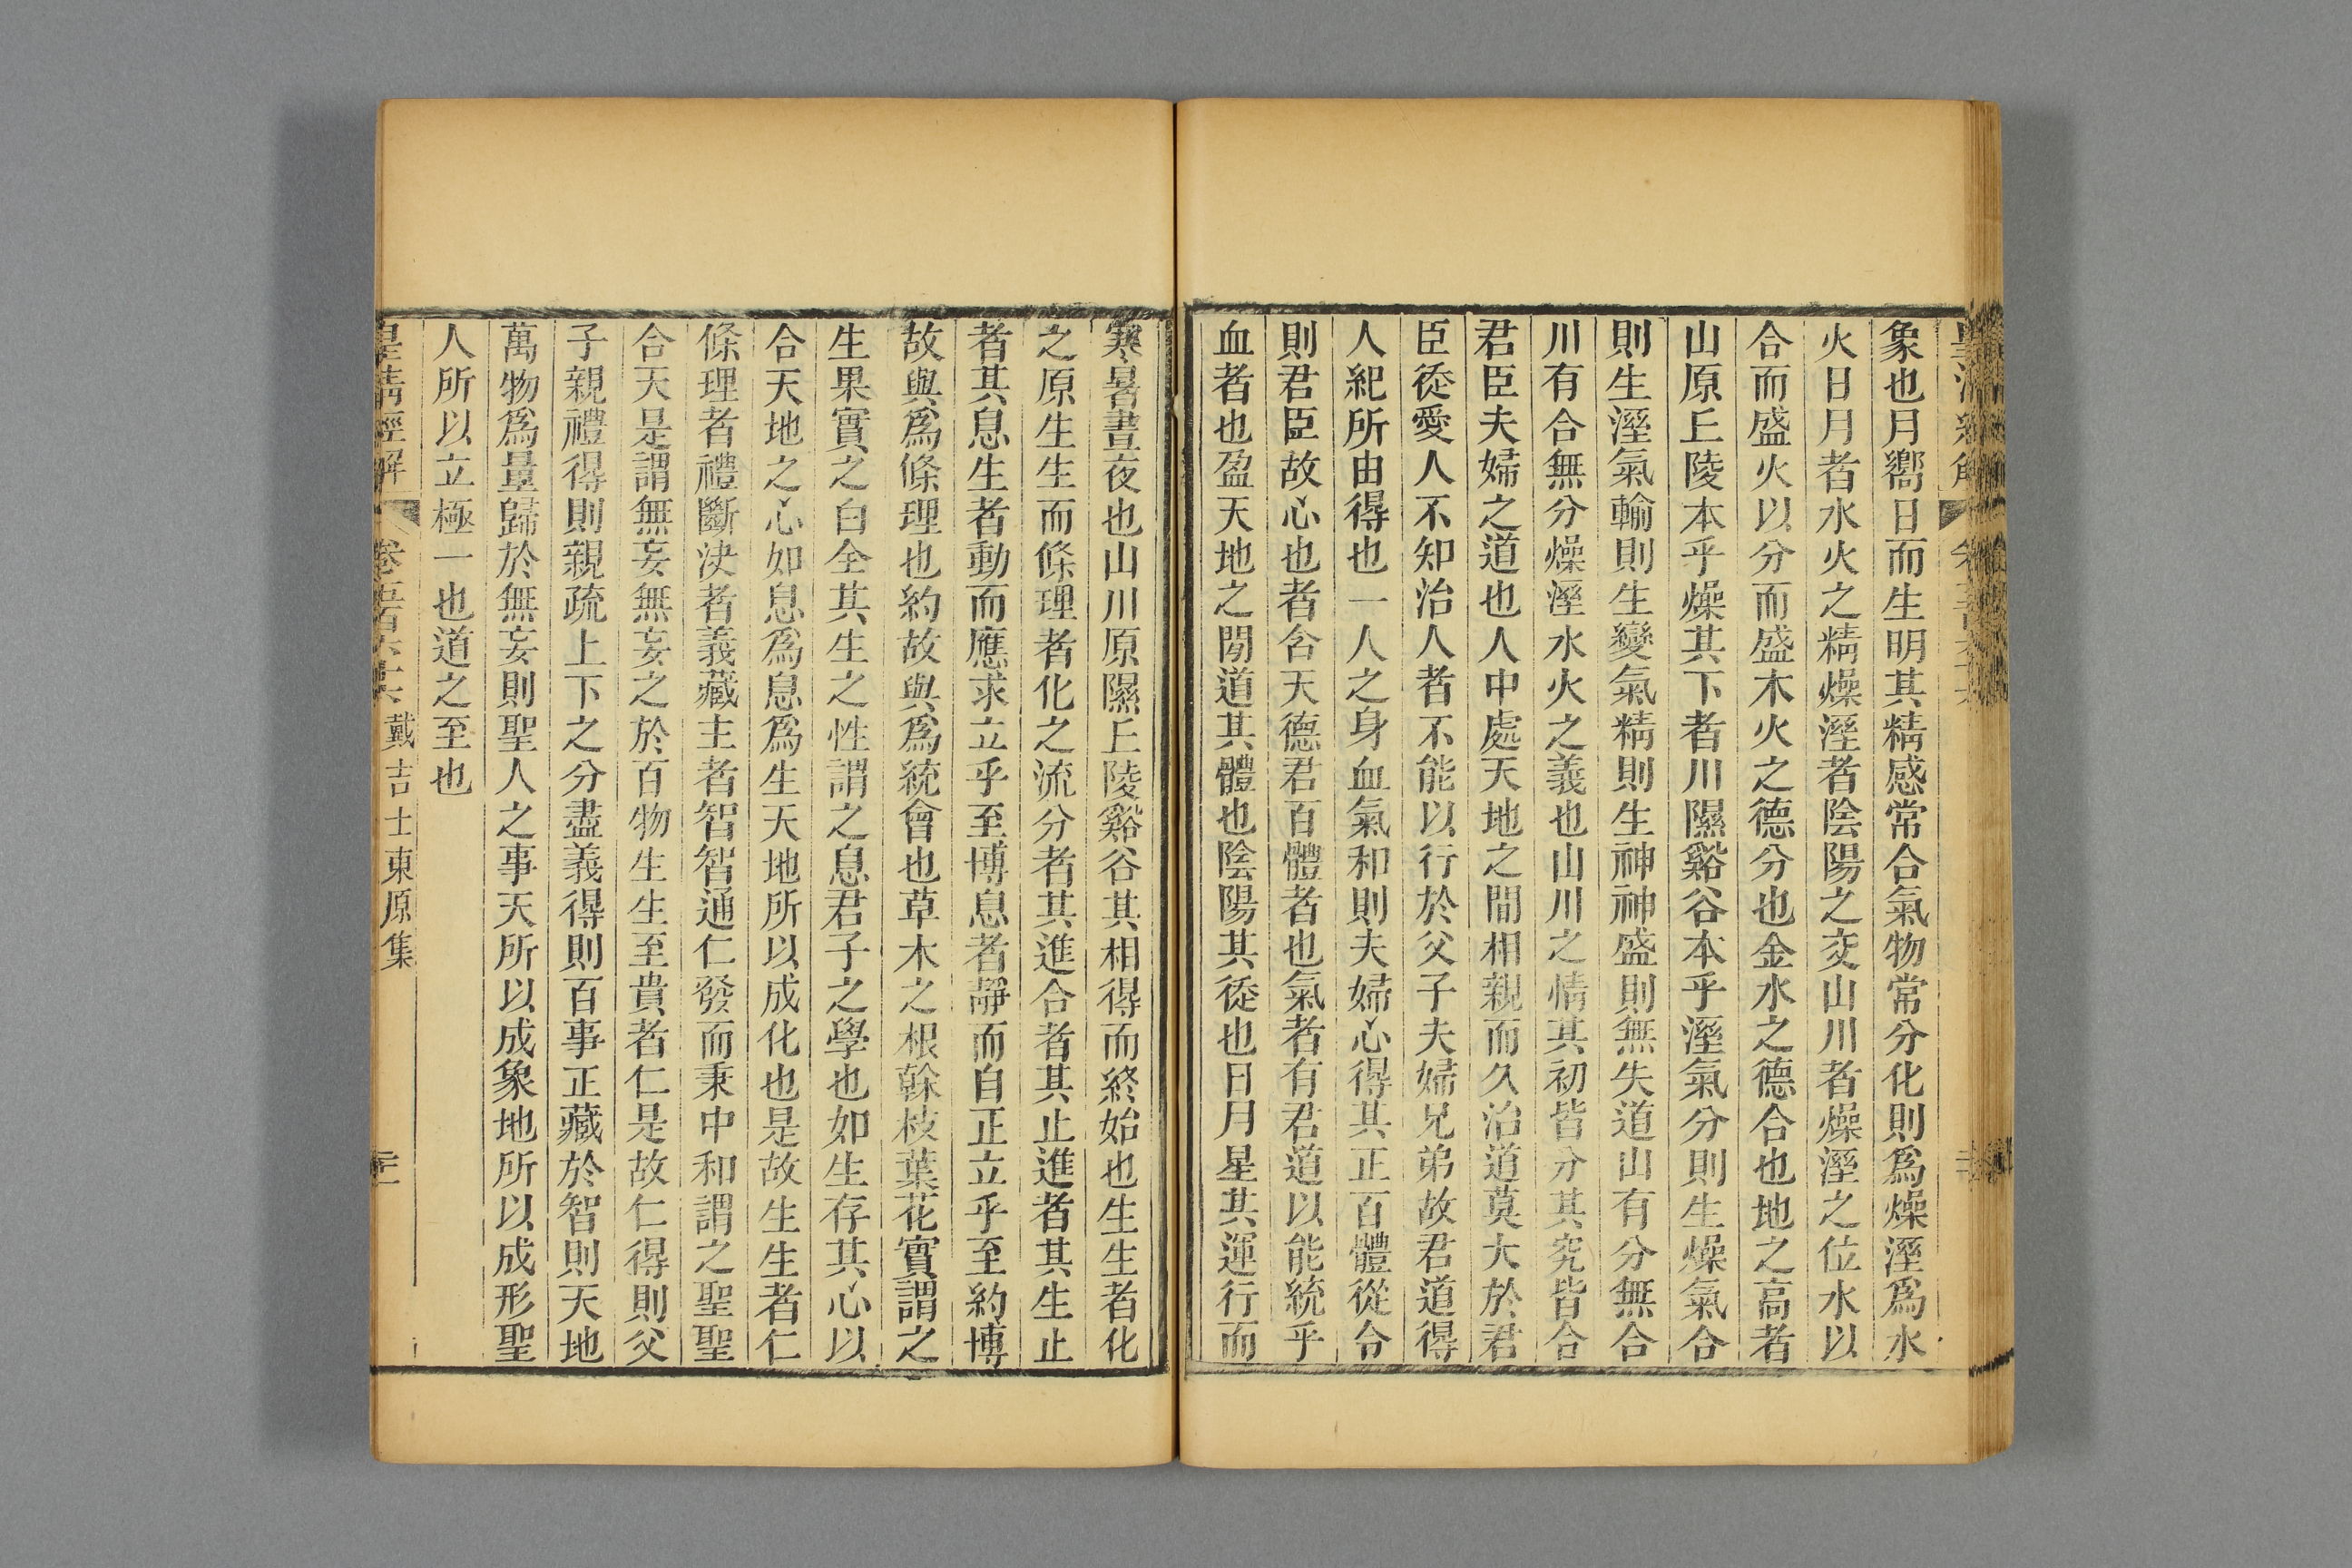 象也月嚮日而生明其精感常合氣物常分化則爲燥溼爲水
火日月者水火之精燥溼者陰陽之交山川者燥溼之位水以
合而盛火以分而盛木火之德分也金水之德合也地之高者
山原丘陵本乎燥其下者川隰谿谷本乎溼氣分則生燥氣合
則生溼氣輸則生變氣精則生神神盛則無失道山有分無合
川有合無分燥溼水火之義也山川之情其初皆分其究皆合
君臣夫婦之道也人中處天地之間相親而久治道莫大於君
臣從愛人不知治人者不能以行於父子夫婦兄弟故君道得
人紀所由得也一人之身血氣和則夫婦心得其正百體從令
則君臣故心也者含天德君百體者也氣者有君道以能統乎
血者也盈天地之閒道其體也陰陽其從也日月星其運行而
寒暑晝夜也山川原隰丘陵谿谷其相得而終始也生生者化
之原生生而條理者化之流分者其進合者其止進者其生止
者其息生者動而應求立乎至博息者靜而自正立乎至約博
故與爲條理也約故與爲統會也草木之根榦枝葉花實謂之
生果實之白全其生之性謂之息君子之學也如生存其心以
合天地之心如息爲息爲生天地所以成化也是故生生者仁
條理者禮斷決者義藏主者智智通仁發而秉中和謂之聖聖
合天是謂無妄無妄之於百物生生至貴者仁是故仁得則父
子親禮得則親疏上下之分盡義得則百事正藏於智則天地
萬物爲量歸於無妄則聖人之事天所以成象地所以成形聖
人所以立極一也道之至也
皇清經解 戴吉士東原集